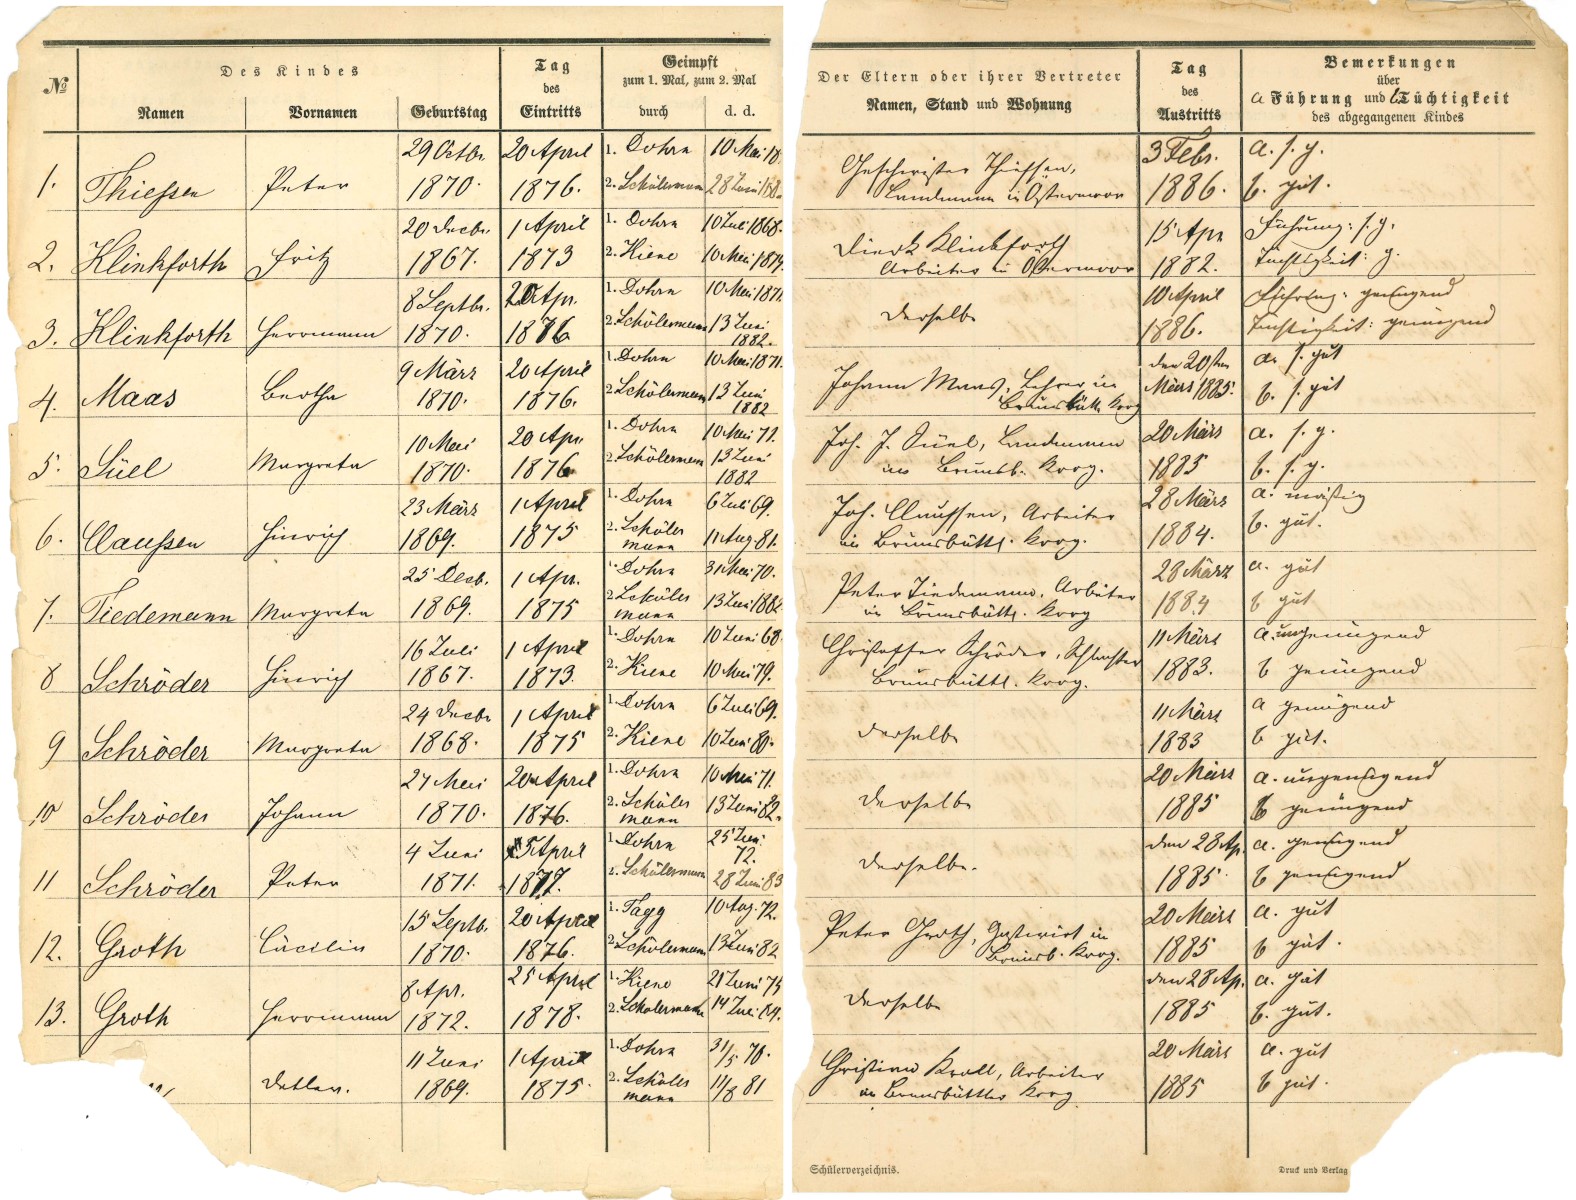 №
Des Kindes
Namen
Vornamen
Geburtstag
Tag
des
Eintritts
Geimpft
zum 1. Mal, zum 2. Mal
durch
d. d.
Der Eltern oder ihrer Vertreter
Namen, Stand und Wohnung
Tag
des
Austritts
Bemerkungen
über
a Führung und b Tüchtigkeit
des abgegangenen Kindes
29 Octbr. 20 April 1. Dohrn 10 Mai 18 3 Febr. a. s. g.
1. Thießen Peter 1870. 1876. 2. Schölermann 28 Juni Geschwister Thießen, 1886. b. gut.
Landmann in Ostermoor
20 Decbr. 1 April 1. Dohrn 10 Juli 1868. 15 Apr Führung: s. g.
2. Klinkforth Fritz 1867. 1873 2. Kiene 10 Mai 1879. Dierk Klinkforth 1882. Tüchtigkeit: g.
Arbeiter in Ostermoor
8 Septbr. 20 Apr. 1. Dohrn 10 Mai 1871. 10 April Führung: genügend
3. Klinkforth Herrmann 1870. 1876 2. Schölermann 13 Juni 1882. derselbe 1886. Tüchtigkeit: genügend
9 März 20 April 1. Dohrn 10 Mai 1871. den 20sten a. s. gut
4. Maas Bertha 1870. 1876. 2. Schölermann 13 Juni 1882 Johann Maas, Lehrer in März 1885. b. s. gut
Brunsbüttl. Koog
10 Mai 20 Apr. 1. Dohrn 10 Mai 71. 20 März a. s. g.
5. Süel Margreta 1870. 1876 2. Schölermann 13 Juni 1882 Joh. J. Süel, Landmann 1885 b. s. g.
im Brunsb. Koog.
23 März 1 April 1. Dohrn 6 Juli 69. 28 März a. mäßig
6. Claußen Hinrich 1869. 1875 2. Schölermann 11 Aug. 81. Joh. Claussen, Arbeiter 1884. b. gut.
im Brunsbüttl. Koog.
25 Decb. 1 Apr. 1. Dohrn 31 Mai 70. 28 März a. gut
7. Tiedemann Margreta 1869. 1875 2. Schölermann 13 Juni 1882 Peter Tiedemann, Arbeiter 1884 b gut
in Brunsbüttl. Koog
16 Juli 1 April 1. Dohrn 10 Juni 68. 11 März a. ungenügend
8 Schröder Hinrich 1867. 1873. 2. Kiene 10 Mai 79. Christoffer Schröder, Schlachter 1883. b genügend
Brunsbüttl. Koog.
24 Decbr 1 April 1. Dohrn 6 Juli 69. 11 März a genügend
9 Schröder Margreta 1868. 1875 2. Kiene 10 Juni 80. derselbe 1883 b gut.
27 Mai 20 April 1. Dohrn 10 Mai 71. 20 März a. ungenügend
10 Schröder Johann 1870. 1876. 2. Schölermann 13 Juni 82. derselbe 1885 b genügend
4 Juni 5 April 1. Dohrn 25 Juni 72. den 28 Ap. a. genügend
11 Schröder Peter 1871. 1877. 2. Schölermann 28 Juni 83 derselbe. 1885. b genügend
15 Septb. 20 April 1. Tagg 10 Aug. 72. 20 März a. gut
12. Groth Cäcilie 1870. 1876. 2. Schölermann 13 Juni 82 Peter Groth, Gastwirt in 1885 b gut.
Brunsb. Koog.
8 Apr. 25 April 1. Kiene 21 Juni 75 den 28 Ap. a. gut
13. Groth Herrmann 1872. 1878. 2. Schölermann 14 Juli 84. derselbe 1885 b. gut.
11 Juni 1 April 1. Dohrn 31/5 70. 20 März a. gut
Detlev. 1869. 1875. 2. Schölermann 11/8 81 Christian Kroll, Arbeiter 1885 b gut.
im Brunsbüttler Koog
Schülerverzeichnis.
Druck und Verlag